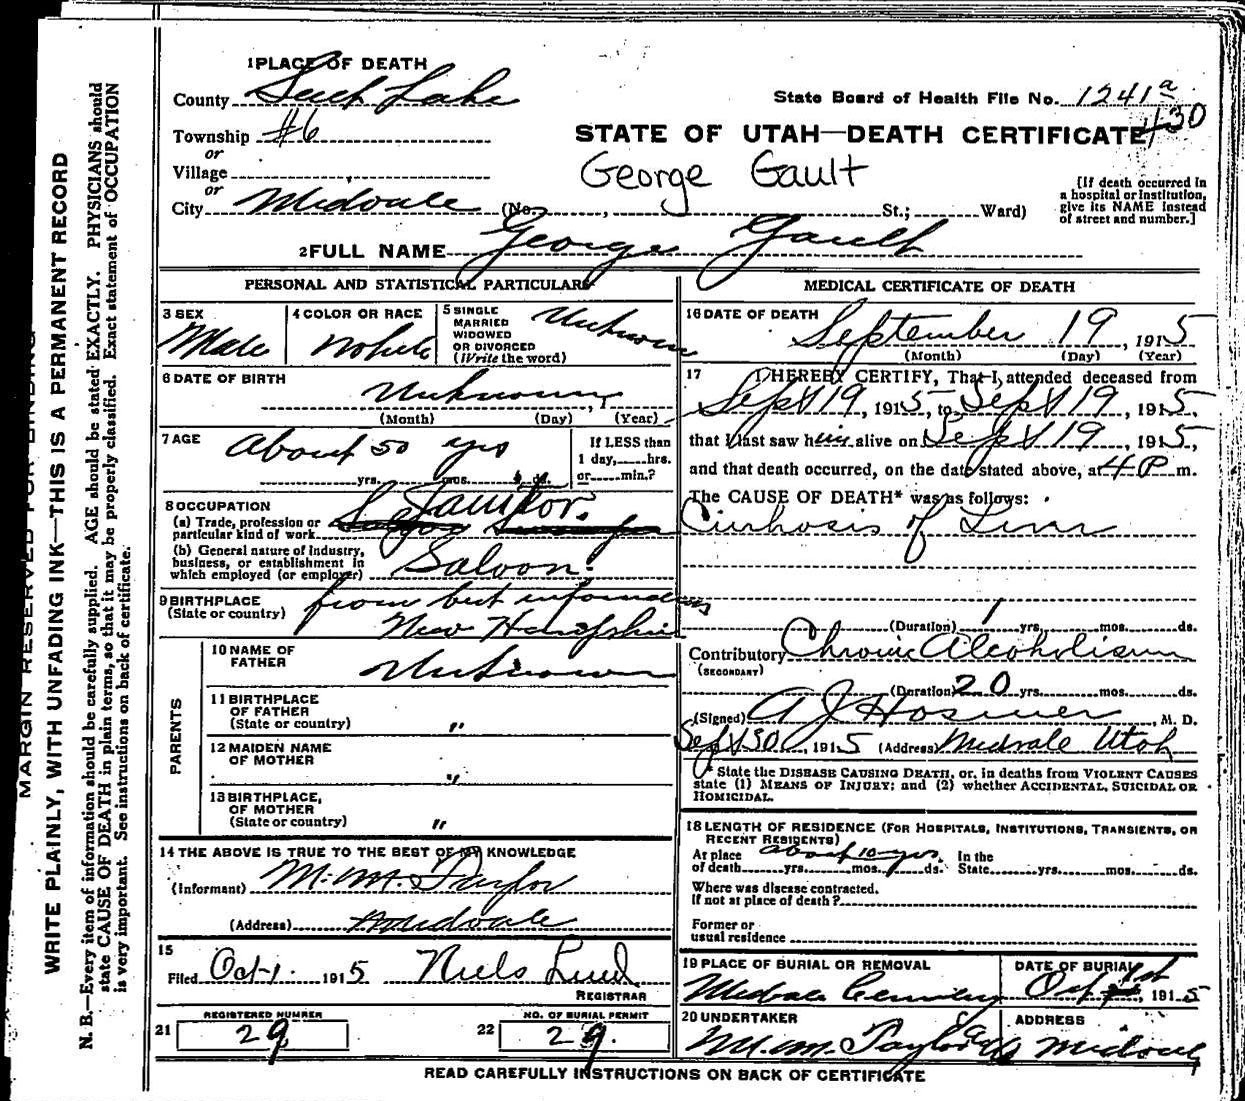 1 PLACE OF DEATH
County Salt Lake
State Board of Health File No. 1241 a
430
Township #6
or
Village
or
City Midvale (No. , St.; Ward)
STATE OF UTAH—DEATH CERTIFICATE
George Gault
[If death occurred in
a hospital or institution,
give its NAME instead
of street and number.]
2 FULL NAME George Gault
PERSONAL AND STATISTICAL PARTICULARS
3 SEX
Male
4 COLOR OR RACE
White
5 SINGLE
MARRIED
WIDOWED
OR DIVORCED
(Write the word)
Unknown
6 DATE OF BIRTH
Unknown
(Month) (Day) (Year)
7 AGE
About 50 yrs
yrs. mos. ds.
If LESS than
1 day,......hrs.
or......min.?
8 OCCUPATION
(a) Trade, profession or
particular kind of work
Janitor.
(b) General nature of industry,
business, or establishment in
which employed (or employer)
Saloon.
9 BIRTHPLACE
(State or country)
from best information
New Hampshire
PARENTS
10 NAME OF
FATHER
Unknown
11 BIRTHPLACE
OF FATHER
(State or country) "
12 MAIDEN NAME
OF MOTHER
"
13 BIRTHPLACE,
OF MOTHER
(State or country) "
14 THE ABOVE IS TRUE TO THE BEST OF MY KNOWLEDGE
(Informant) M. M. Taylor
(Address) Midvale
15
Filed Oct 1. 1915 Niels Lind
REGISTRAR
REGISTERED NUMBER
21 29
NO. OF BURIAL PERMIT
22 29.
MEDICAL CERTIFICATE OF DEATH
16 DATE OF DEATH
September 19, 1915
(Month) (Day) (Year)
17 I HEREBY CERTIFY, That I attended deceased from
Sept 19, 1915, to Sept 19, 1915,
that I last saw him alive on Sept 19, 1915,
and that death occurred, on the date stated above, at 4 P m.
The CAUSE OF DEATH* was as follows:
Cirrhosis of Liver
(Duration) 1 yrs. mos. ds.
Contributory Chronic Alcoholism
(SECONDARY)
(Duration) 20 yrs. mos. ds.
(Signed) A J Hosmer, M. D.
Sept 30, 1915 (Address) Midvale Utah
* State the DISEASE CAUSING DEATH, or, in deaths from VIOLENT CAUSES
state (1) MEANS OF INJURY; and (2) whether ACCIDENTAL, SUICIDAL OR
HOMICIDAL.
18 LENGTH OF RESIDENCE (FOR HOSPITALS, INSTITUTIONS, TRANSIENTS, OR
RECENT RESIDENTS)
At place about 10 yrs. In the
of death......yrs......mos......ds. State......yrs......mos......ds.
Where was disease contracted.
if not at place of death?
Former or
usual residence
19 PLACE OF BURIAL OR REMOVAL
Midvale Cemetery
DATE OF BURIAL
Oct 1st, 1915
20 UNDERTAKER
M. M. Taylor
ADDRESS
Midvale
READ CAREFULLY INSTRUCTIONS ON BACK OF CERTIFICATE
MARGIN RESERVED FOR BINDING
WRITE PLAINLY, WITH UNFADING INK—THIS IS A PERMANENT RECORD
N. B.—Every item of information should be carefully supplied. AGE should be stated EXACTLY. PHYSICIANS should
state CAUSE OF DEATH in plain terms, so that it may be properly classified. Exact statement of OCCUPATION
is very important. See instructions on back of certificate.